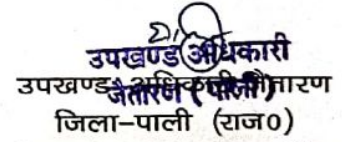 उपखण्ड अधिकारी
जैतारण (पाली)
उपखण्ड अधिकारी जैतारण
जिला-पाली (राज0)